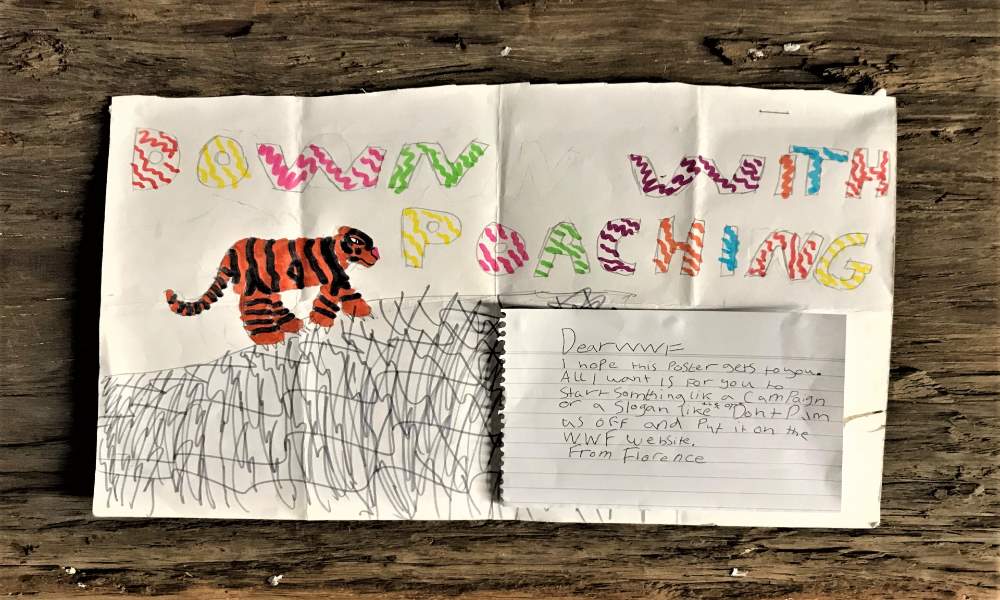 DOWN WITH
POACHING
Dear WWF
I hope this Poster gets to you.
All I want is for you to
Start Somthing lik a Campaign
or a Slogan like Don't
us off and Put it on the
WWF website.
From Florence